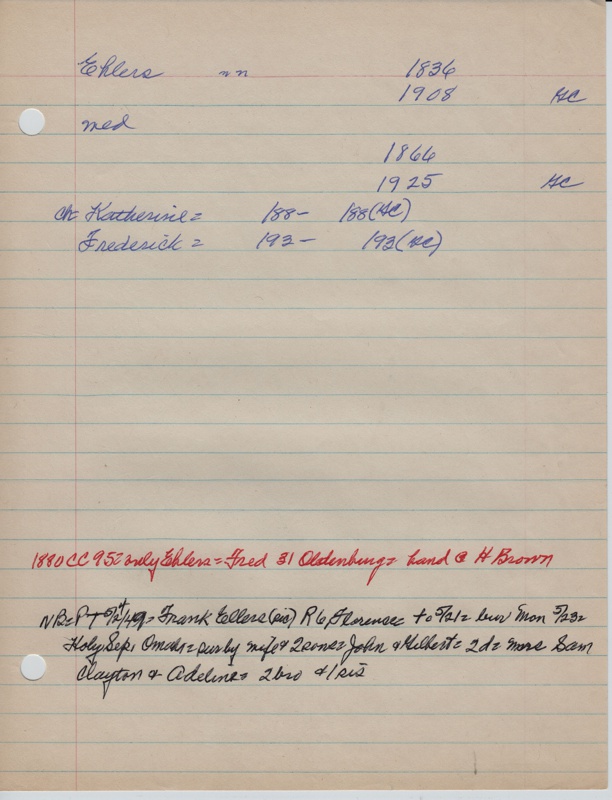 Ehlers nn 1836
1908 HC
med
1866
1925 HC
ch Katherine = 188- 188(HC)
Frederick = 193- 193(HC)
1880 CC 95= only Ehlers = Fred 31 Oldenburg = hand @ H Brown
NB= PT 5/24/49= Frank Ellers (sic) R6, Florence= to 5/21= bur Mon 5/23=
Holy Sep, Omaha= sur by wife & 2 sons= John & Gilbert= 2d= mrs Sam
Clayton & Adeline= 2 bro & 1 sis